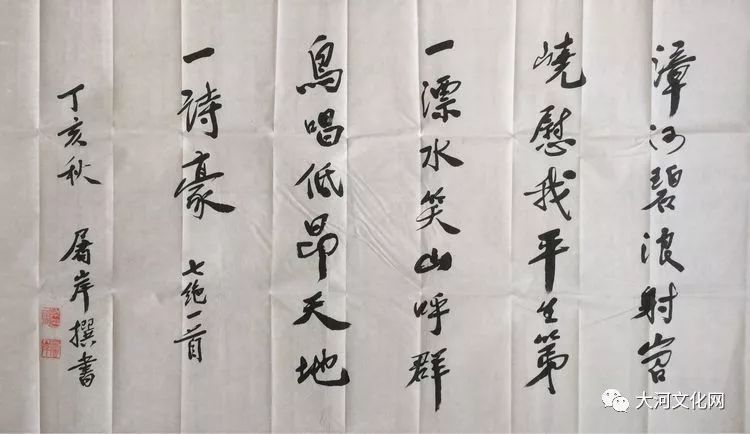 漳河碧浪射岧
嶢慰我平生第
一漂水笑山呼群
鳥唱低昂天地
一詩豪 七絶一首
丁亥秋 屠岸撰書
大河文化网